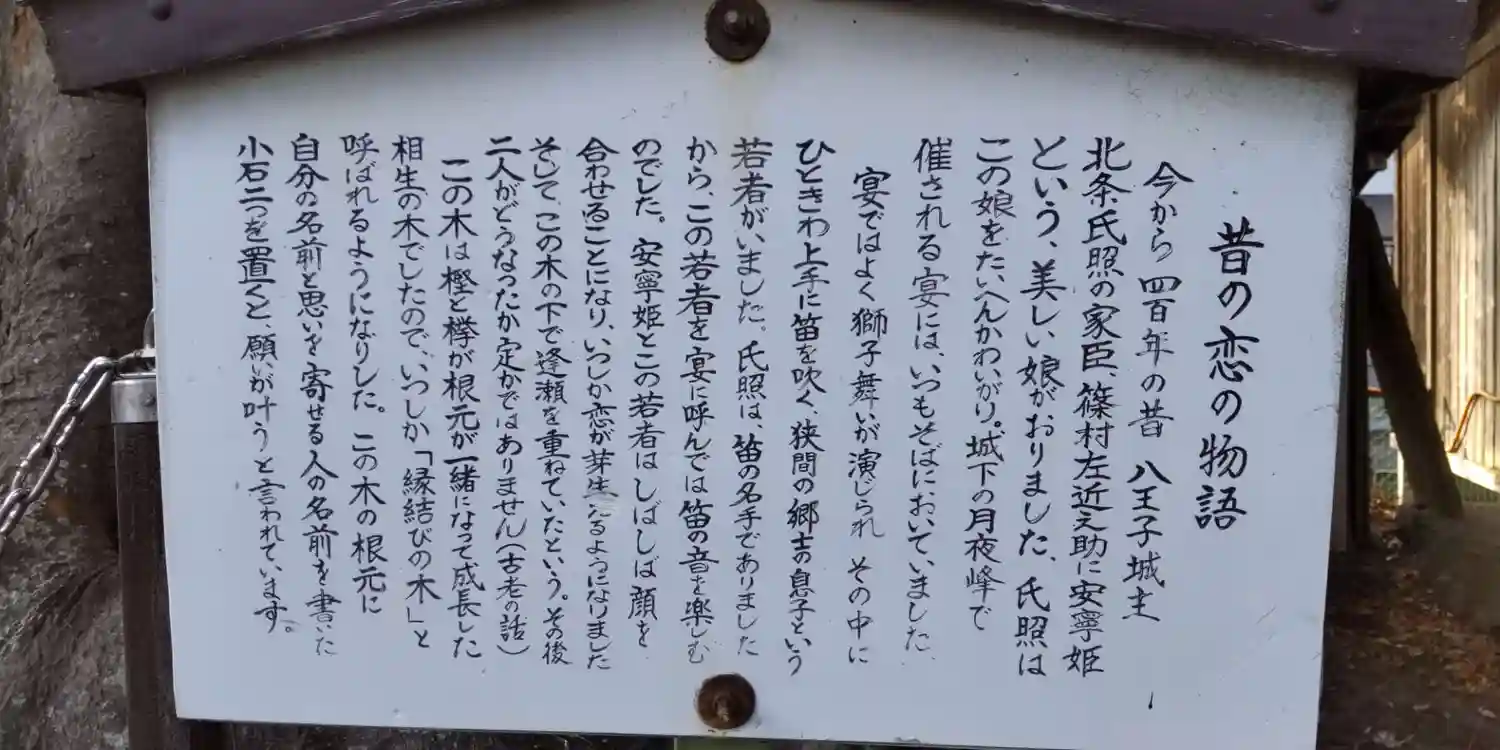 昔の恋の物語
今から四百年の昔 八王子城主
北条氏照の家臣、篠村左近之助に安寧姫
という、美しい娘がおりました、氏照は
この娘をたいへんかわいがり。城下の月夜峰で
催される宴には、いつもそばにおいていました、
宴ではよく獅子舞いが演じられ その中に
ひときわ上手に笛を吹く、狭間の郷士の息子という
若者がいました、氏照は、笛の名手でありました
から、この若者を宴に呼んでは笛の音を楽しむ
のでした。安寧姫とこの若者はしばしば顔を
合わせることになり、いつしか恋が芽生えるようになりました
そして、この木の下で逢瀬を重ねていたという。その後
二人がどうなったか定かではありません(古老の話)
この木は樫と欅が根元が一緒になって成長した
相生の木でしたので、いつしか「縁結びの木」と
呼ばれるようになりした。この木の根元に
自分の名前と思いを寄せる人の名前を書いた
小石二つを置くと、願いが叶うと言われています。